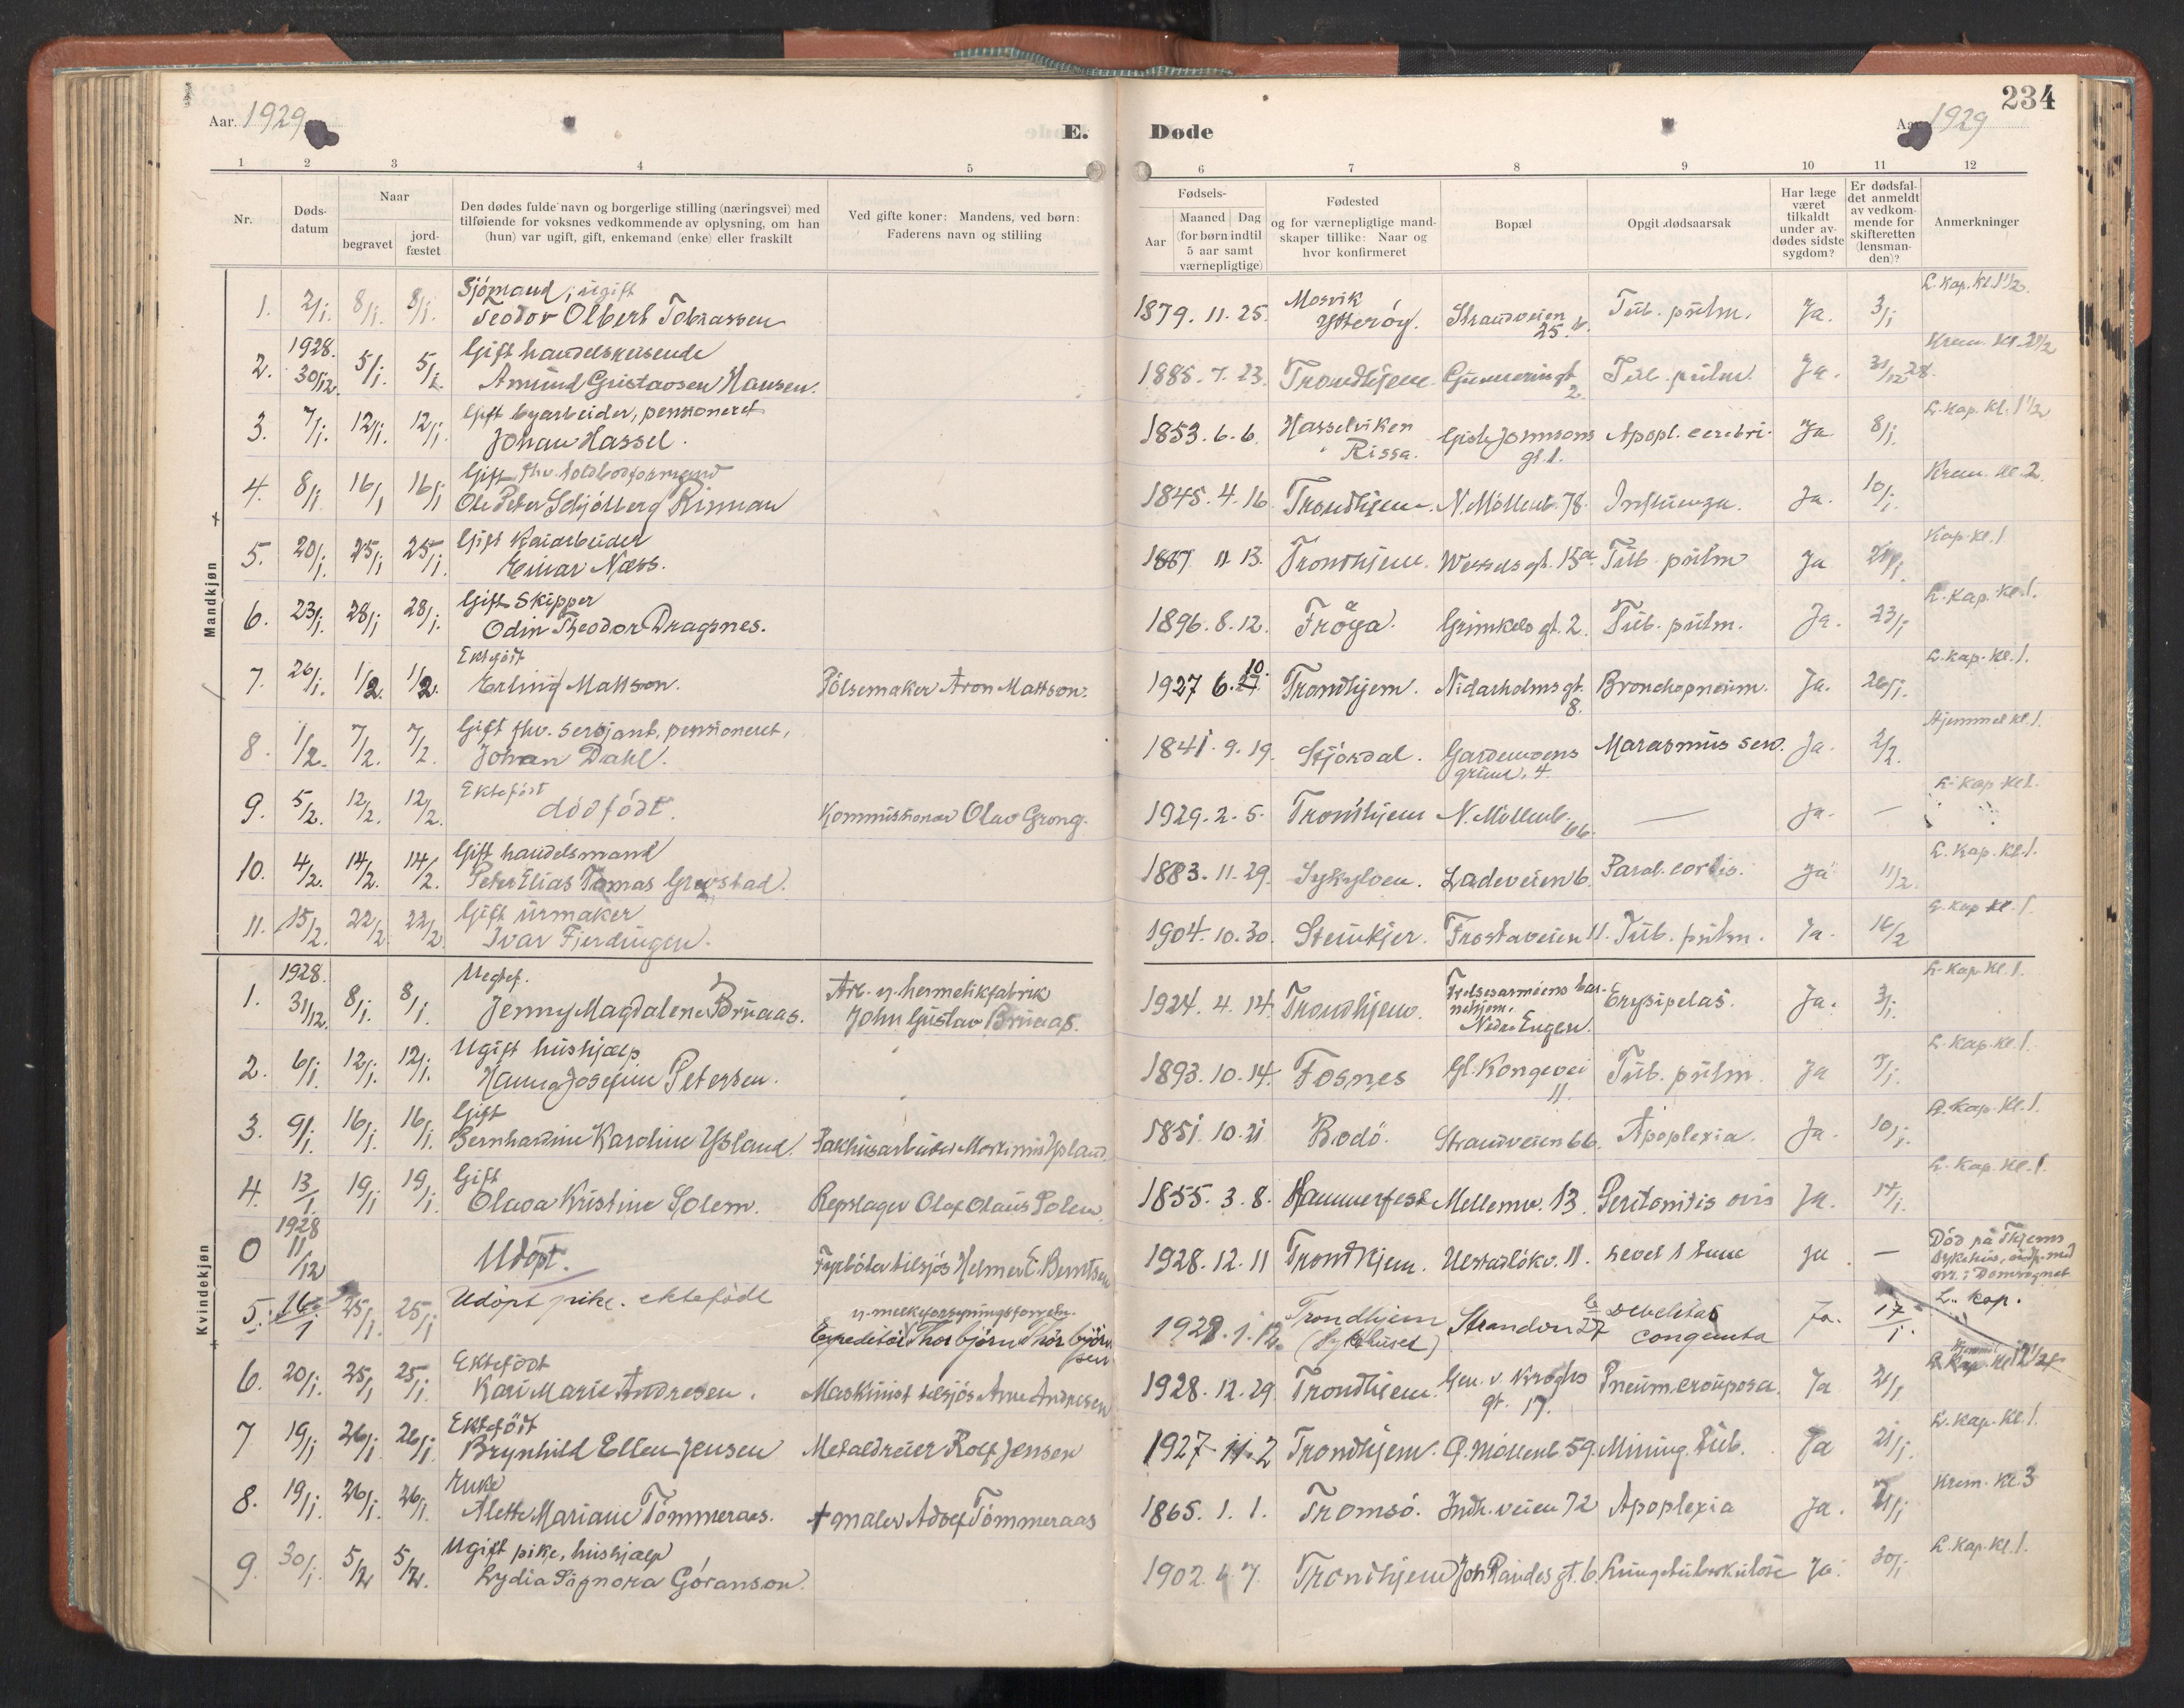 234
Aar. 1929
E. Døde
Aar 1929
1 2 3 4 5 6 7 8 9 10 11 12
Nr.
Døds-
datum
Naar
begravet
jord-
fæstet
Den dødes fulde navn og borgerlige stilling (næringsvei) med
tilføiende for voksnes vedkommende av oplysning, om han
(hun) var ugift, gift, enkemand (enke) eller fraskilt
Ved gifte koner: Mandens, ved børn:
Faderens navn og stilling
Fødsels-
Aar
Maaned Dag
(for børn indtil
5 aar samt
værnepligtige)
Fødested
og for værnepligtige mand-
skaper tillike: Naar og
hvor konfirmeret
Bopæl
Opgit dødsaarsak
Har læge
været
tilkaldt
under av-
dødes sidste
sygdom?
Er dødsfal-
det anmeldt
av vedkom-
mende for
skifteretten
(lensman-
den)?
Anmerkninger
Mandkjøn
Sjömand, ugift L. kap. kl. 1 1/2.
1. 2/1. 8/1. 8/1. Teodor Olbert Tobiassen 1879. 11. 25. Mosvik Ytteröy. Strandveien 25 b. Tub. pulm. Ja. 3/1
1928. Gift handelsreisende Krem. kl. 2 1/2
2. 30/12. 5/1. 5/1. Amund Gustavsen Hansen. 1885. 7. 23. Trondhjem. 2. Tub. pulm. Ja. 31/12 28.
Gift byarbeider, pensioneret L. kap. kl. 1 1/2
3. 7/1. 12/1. 12/1. Johan Hassel. 1853. 6. 6. Hasselviken Rissa. Gisle Johnsons gt. 1. Apopl. cerebri. Ja 8/1.
Gift fhv. toldbodformand Krem. kl. 2.
4. 8/1 16/1 16/1 Ole Peter Schjölberg Rinnan 1845. 4. 16. Trondhjem. N. Möllenb. 78. Influenza. Ja. 10/1.
Gift Kaiarbeider Kap. kl. 1
5. 20/1. 25/1 25/1. Einar Næss. 1887 11 13. Trondhjem. Wessels gt. 15a. Tub. pulm Ja 21/1.
Gift Skipper L. kap. kl. 1.
6. 23/1. 28/1 28/1. Odin Theodor Dragsnes. 1896. 8. 12. Fröya. Grimkels gt. 2. Tub. pulm. Ja. 23/1
Ektefödt L. kap. kl. 1.
7. 26/1. 1/2. 1/2. Erling Mattson. Pölsemaker Aron Mattson. 1927 6. 10. Trondhjem. Nidarholms gt. 8. Bronchopneum. Ja. 26/1.
Gift fhv. sersjant, pensioneret, Hjemmet kl. 1.
8. 1/2. 7/2. 7/2. Johan Dahl. 1841. 9. 19. Stjördal. Gardemoens grund. 4 Marasmus sen. Ja. 2/2.
Ektefödt L. kap kl. 1.
9. 5/2. 12/2. 12/2. dödfödt. Kommissionær Olav Grong. 1929. 2. 5. Trondhjem N. Möllenb. 66. — Ja. —
Gift handelsmand L. kap. kl. 1.
10. 4/2. 14/2. 14/2. Peter Elias Tomas Grevstad. 1883. 11. 29. Sykylven. Ladeveien 6. Paral. cordis. Ja 11/2
Gift urmaker L. kap kl. 1.
11. 15/2. 22/2 22/2 Ivar Fjerdingen. 1904. 10. 30. Steinkjer. Frostaveien 11. Tub. pulm. Ja. 16/2
Kvindekjøn
1928. Uegtef. L. kap. kl. 1.
1. 31/12. 8/1. 8/1. Jenny Magdalene Bruaas. Arb. v. hermetikfabrik John Gustav Bruaas. 1924. 4. 14. Trondhjem. Frelsesarmeens barnehjem. Nedre Eugen. Erysipelas. Ja. 3/1.
Ugift hushjælp L. kap. kl. 1.
2. 6/1. 12/1. 12/1. Hanna Josefine Petersen. 1893. 10. 14. Fosnes Gl. Kongevei 11. Tub. pulm. Ja 7/1.
Gift L. kap. kl. 1.
3. 9/1. 16/1. 16/1. Bernhardine Karoline Ysland. Pakhusarbeider Ysland. 1851. 10. 21 Bodö. Strandveien 66. Apoplexia. Ja. 10/1.
Gift L. kap. kl. 1.
4. 13/1. 19/1 19/1. Olava Kristine Solem. Repslager Olaf Olaus Solem. 1855. 3. 8. Hammerfest Mellemv. 13. Ja. 14/1.
1928
0 11/12 Udöpt. Fyrböter tilsjös Helmer E. Berntsen 1928. 12. 11 Trondhjem. 11. levet 1 time Ja. — Död på Thjems sykehus, nr. i Domsognet
5. 16/1 25/1. 25/1 Udöpt pike. ektefödt v. melkeforsyningsforretn. Expeditör Thorbjörn Thorbjörnsen 1929. 1. 12. Trondhjem (Sykehuset) Strandvn 27 b Debilitas congenita Ja. 17/1. L. kap.
Ektefödt
6. 20/1. 25/1 25/1. Kari Marie Andresen. Maskinist tilsjös Arne Andresen 1928. 12. 29. Trondhjem. Gen. v. Kroghs gt. 17. Pneum. crouposa. Ja 21/1
Ektefödt L. kap. kl. 1.
7 19/1 26/1 26/1. Brynhild Ellen Jensen Metaldreier Rolf Jensen 1927 - 11. 2 Trondhjem. Ö. Möllenb. 59. Mining. tub. Ja 21/1.
Enke Krem. kl. 3
8. 19/1 26/1. 26/1. Alette Mariane Tömmeraas. + maler Adolf Tömmeraas 1865. 1. 1. Tromsö. Indh. veien 72 Apoplexia Ja. 21/1
Ugift pike, hushjælp L. kap. kl. 1.
9. 30/1. 5/2 5/2. Lydia Signora Göranson. 1902. 4 7. Trondhjem Joh. Raudes gt. 6. Lungetuberkulose Ja. 30/1